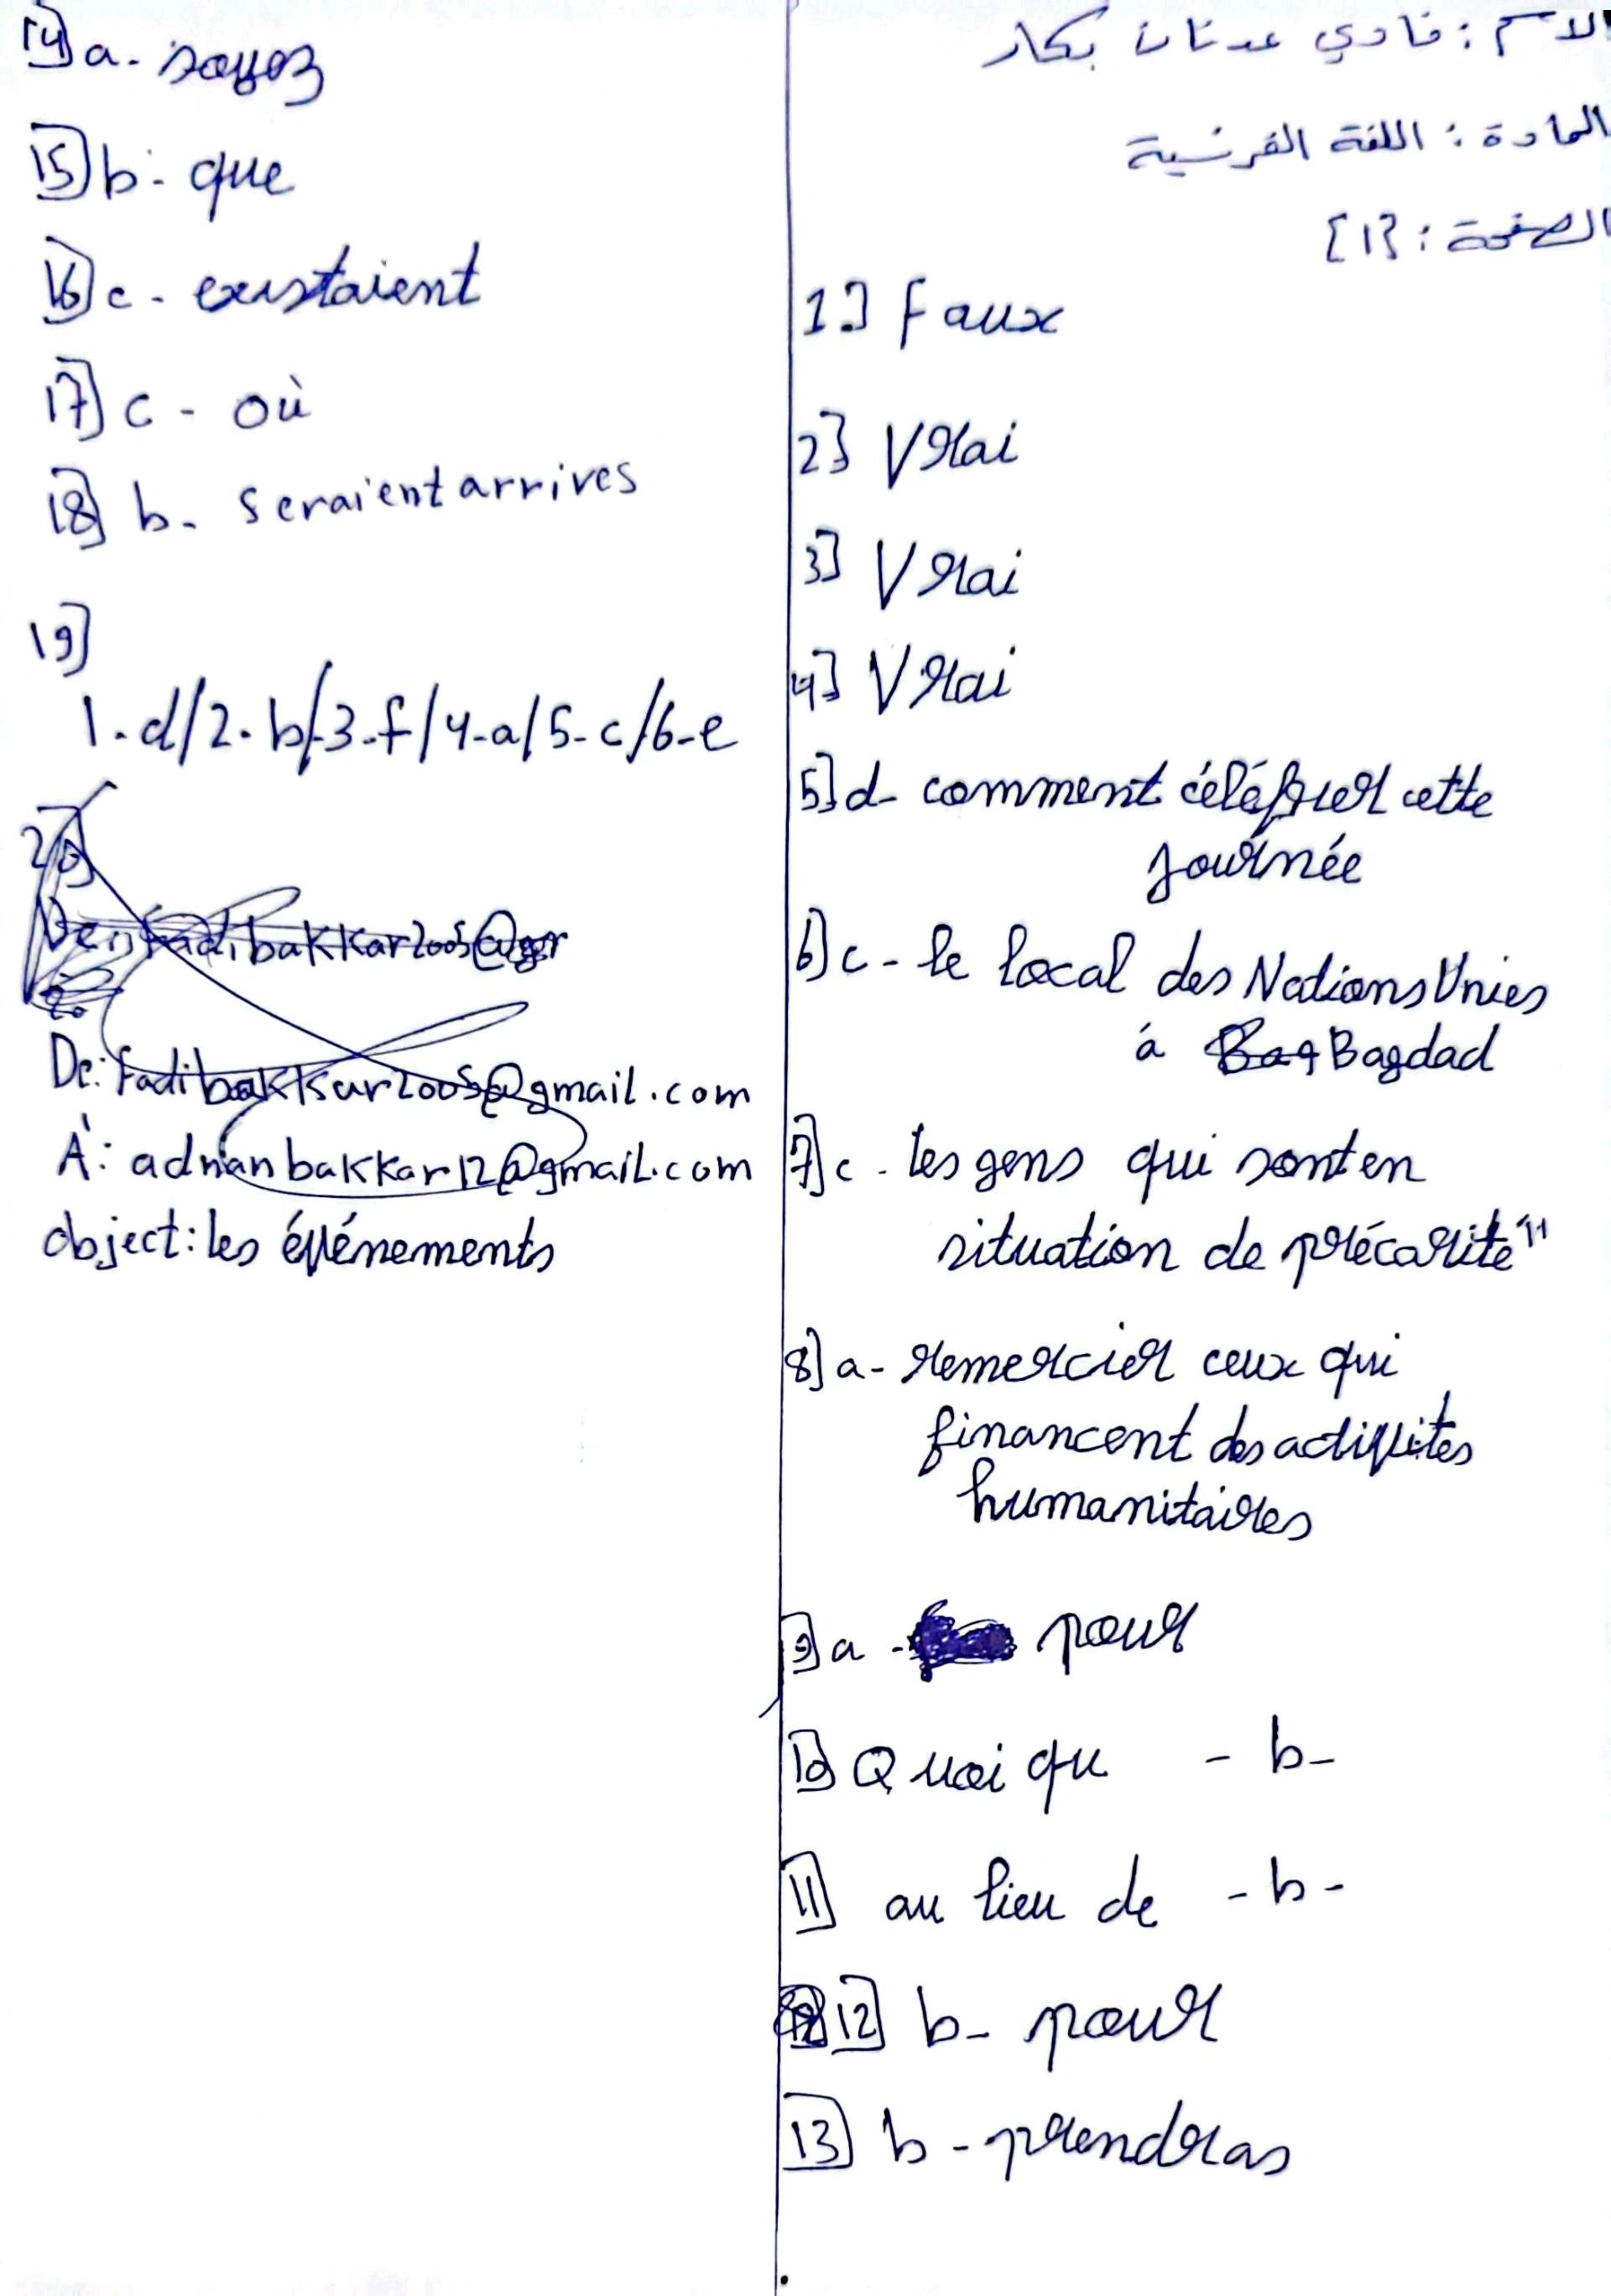 الاسم : فادي عدنان بكار
المادة : اللغة الفرنسية
الصفحة : {1}
1] Faux
2] Vrai
3] Vrai
4] Vrai
5] d- comment célébrer cette
journée
6] c - le local des Nations Unies
à Bagdad
7] c - les gens qui sont en
situation de précarité"
8] a - remercier ceux qui
financent des activités
humanitaires
9] a - pour
10] Quoi qu - b -
11] au lieu de - b -
12] b - pour
13] b - prendras
14] a - soyez
15] b - que
16] c - existaient
17] c - où
18] b - seraient arrives
19]
1. d/2. b/3-f/4-a/5-c/6-e
20]
De: fadibakkar2005@
De: fadibakkar2005@gmail.com
À: adnanbakkar12@gmail.com
object: les événements